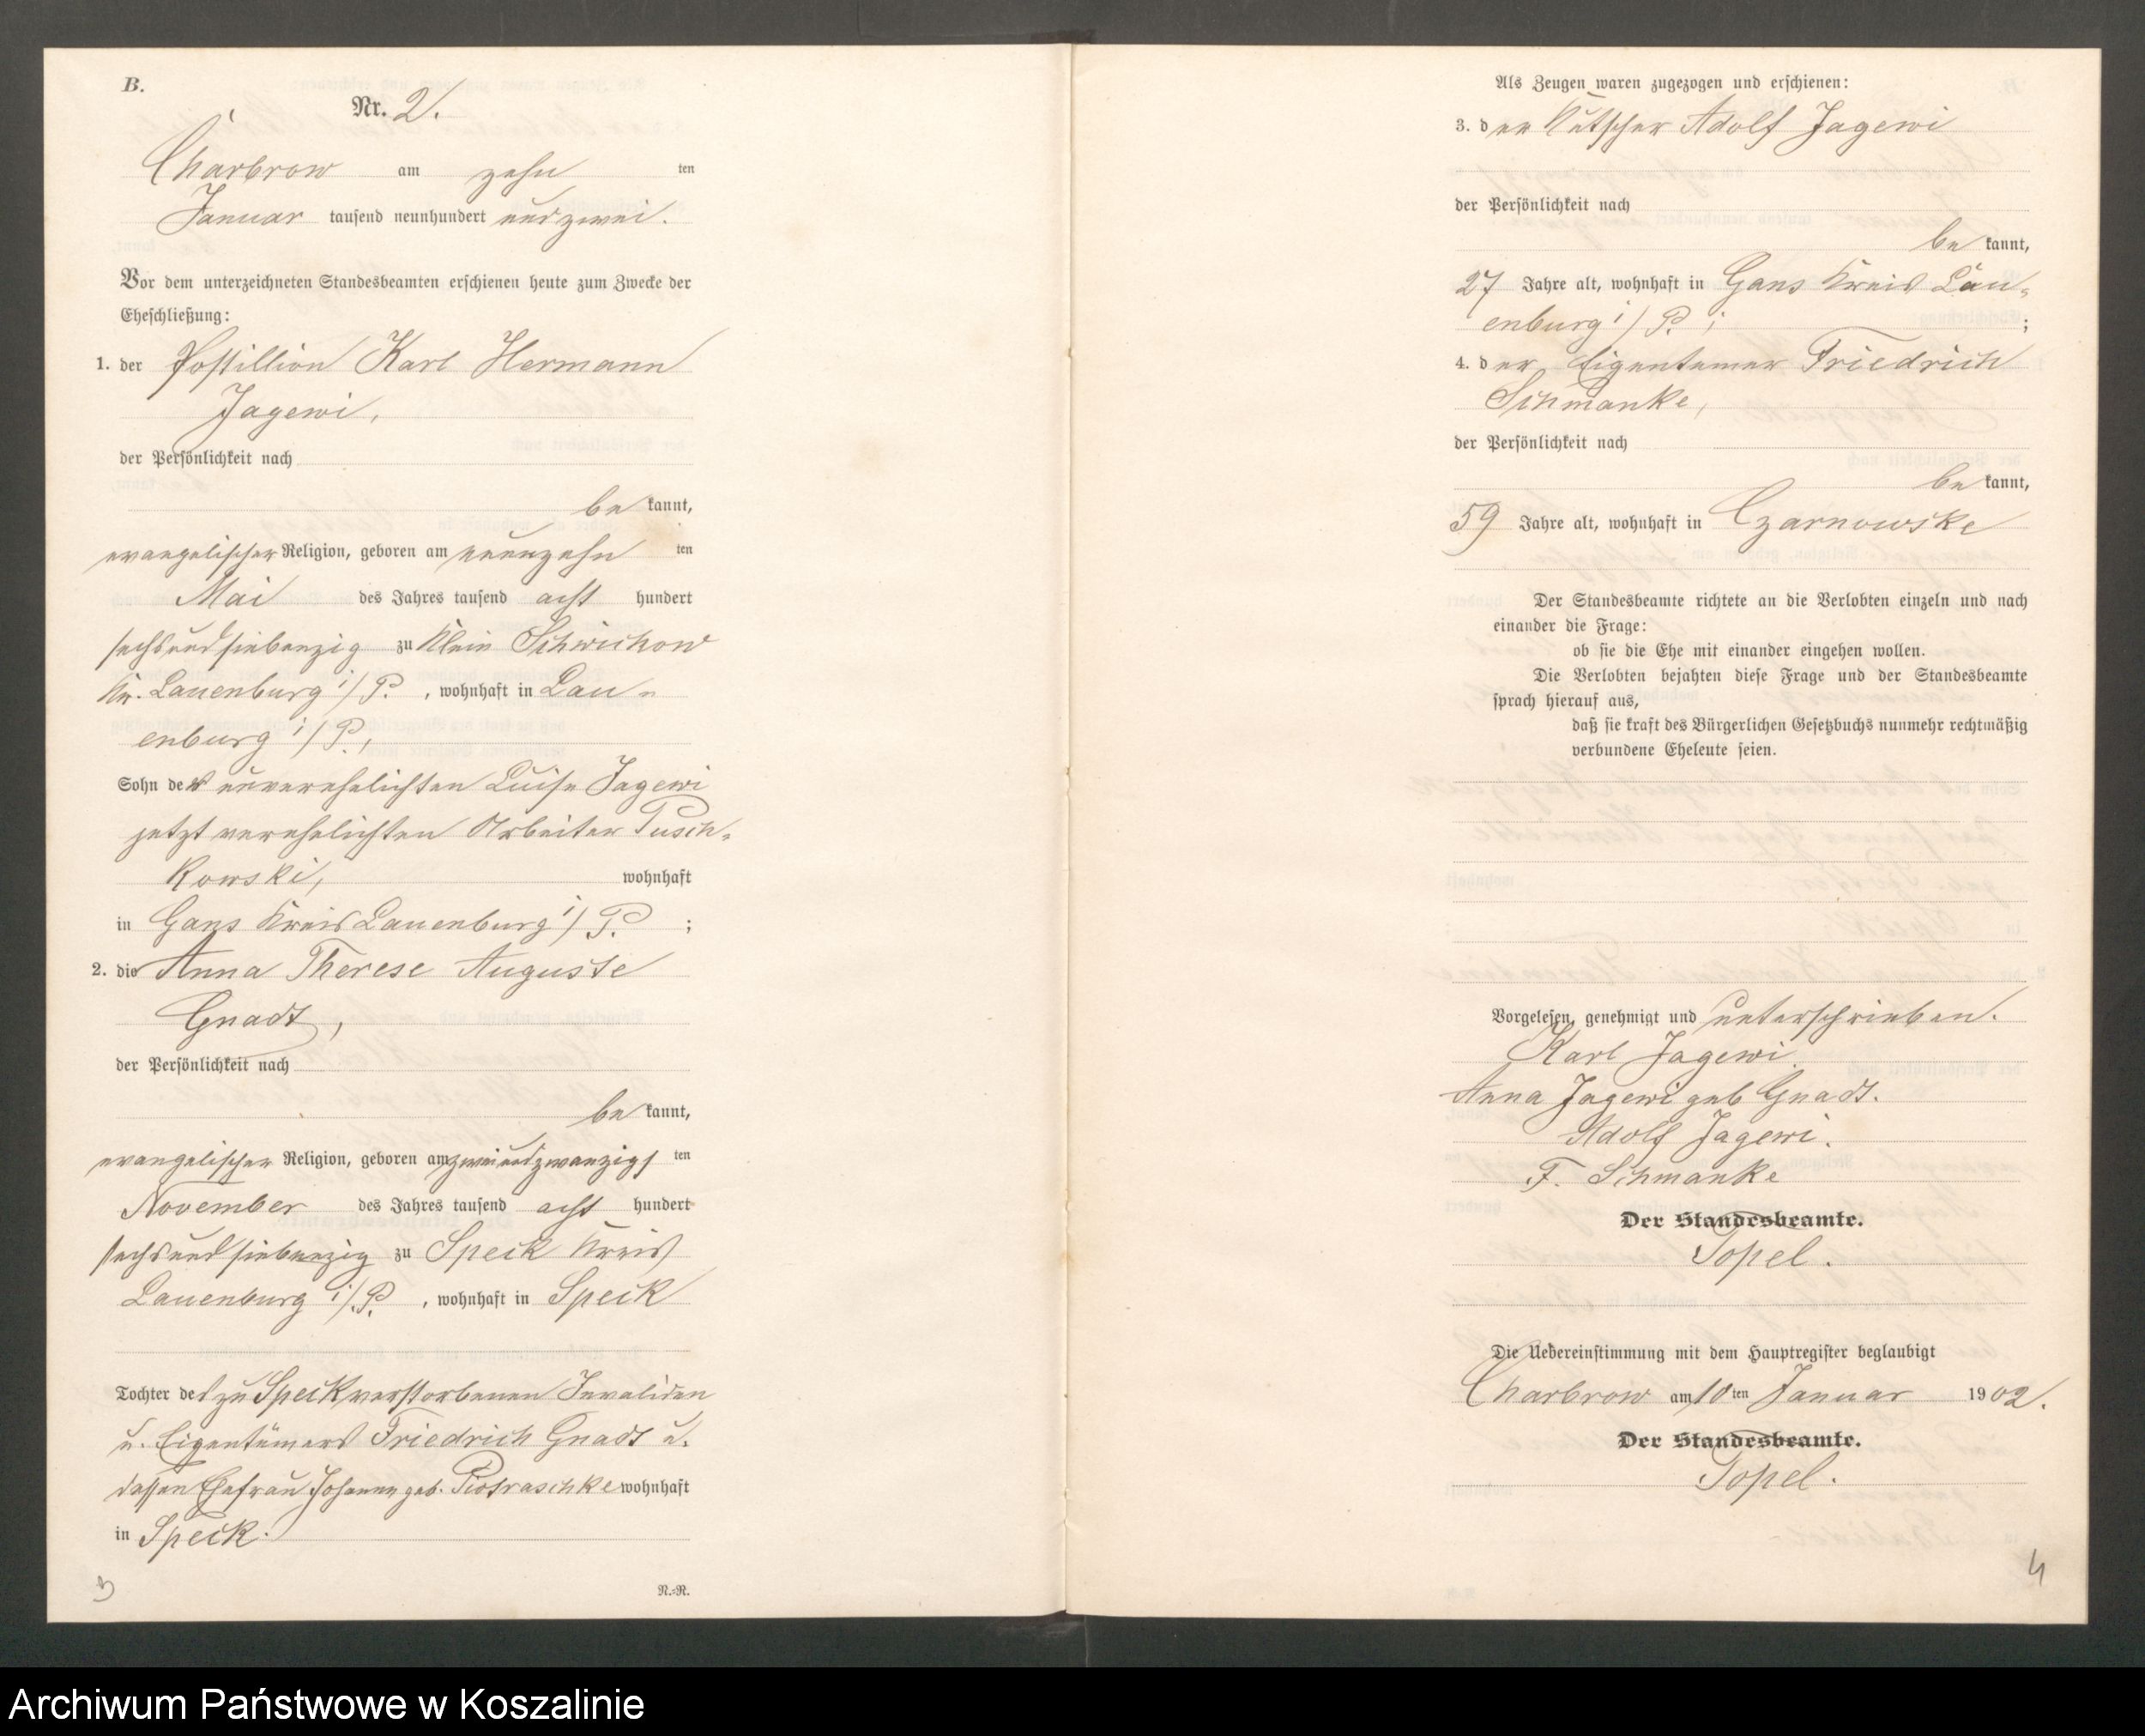 B.
Nr. 2.
Charbrow am zehn ten
Januar tausend neunhundert und zwei.
Vor dem unterzeichneten Standesbeamten erschienen heute zum Zwecke der
Eheschließung:
1. der Postillion Karl Hermann
Jagewi,
der Persönlichkeit nach
be kannt,
evangelischer Religion, geboren am neunzehn ten
Mai des Jahres tausend acht hundert
sechsundsiebenzig zu Klein Schwichow
Kr. Lauenburg i/P. , wohnhaft in Lau-
enburg i/P.,
Sohn der unverehelichten Luise Jagewi
jetzt verehelichten Arbeiter Pusch-
kowski, wohnhaft
in Gans Kreis Lauenburg i/P. ;
2. die Anna Therese Auguste
Gnadt,
der Persönlichkeit nach
be kannt,
evangelischer Religion, geboren am zweiundzwanzigs ten
November des Jahres tausend acht hundert
sechsundsiebenzig zu Speck Kreis
Lauenburg i/P. , wohnhaft in Speck
Tochter des zu Speck verstorbenen Invaliden
u. Eigentümers Friedrich Gnadt u.
dessen Ehefrau Johanne geb. Piotraschke wohnhaft
in Speck.
3
N.=N.
Als Zeugen waren zugezogen und erschienen:
3. der Kutscher Adolf Jagewi
der Persönlichkeit nach
be kannt,
27 Jahre alt, wohnhaft in Gans Kreis Lau-
enburg i/P. ; ;
4. der Eigentemer Friedrich
Schmanke,
der Persönlichkeit nach
be kannt,
59 Jahre alt, wohnhaft in Czarnowske
Der Standesbeamte richtete an die Verlobten einzeln und nach
einander die Frage:
ob sie die Ehe mit einander eingehen wollen.
Die Verlobten bejahten diese Frage und der Standesbeamte
sprach hierauf aus,
daß sie kraft des Bürgerlichen Gesetzbuchs nunmehr rechtmäßig
verbundene Eheleute seien.
Vorgelesen, genehmigt und unterschrieben.
Karl Jagewi
Anna Jagewi geb Gnadt.
Adolf Jagewi.
F. Schmanke
Der Standesbeamte.
Topel.
Die Uebereinstimmung mit dem Hauptregister beglaubigt
Charbrow am 10 ten Januar 1902.
Der Standesbeamte.
Topel.
4
Archiwum Państwowe w Koszalinie